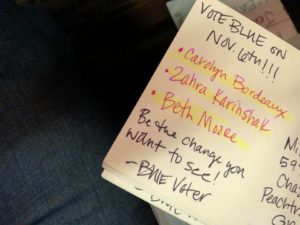 VOTE BLUE ON
NOV. 6th!!!
• Carolyn Bordeaux
• Zahra Karinshak
• Beth Moore
Be the change you
want to see!
- BLUE Voter
59
Cha
Peacht